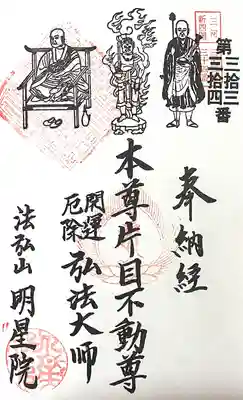 第三拾三
三拾四番
奉納經
本尊片目不動尊
開運
厄除
弘法大師
法弘山 明星院